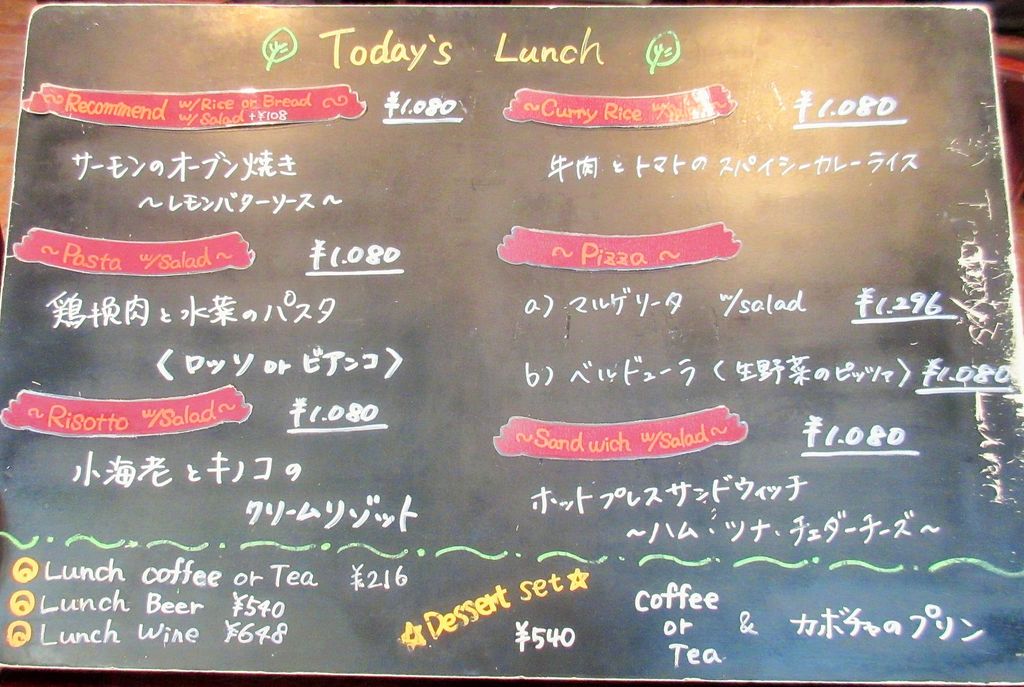 Today's Lunch
Recommend w/Rice or Bread
w/Salad +¥108
¥1.080
サーモンのオーブン焼き
～レモンバターソース～
Pasta w/Salad～
¥1.080
鶏損肉と水菜のパスタ
〈ロッソ or ビアンコ〉
～Risotto w/Salad～
¥1.080
小海老とキノコの
クリームリゾット
～Curry Rice
¥1.080
牛肉とトマトのスパイシーカレーライス
～Pizza～
a) マルゲリータ w/salad ¥1.296
b) ベルドューラ (生野菜のピッツァ) ¥1.080
～Sandwich w/Salad～
¥1.080
ホットプレスサンドウィッチ
～ハム・ツナ・チェダーチーズ～
Lunch coffee or Tea ¥216
Lunch Beer ¥540
Lunch Wine ¥648
☆Dessert set☆
¥540
coffee
or
Tea
& カボチャのプリン